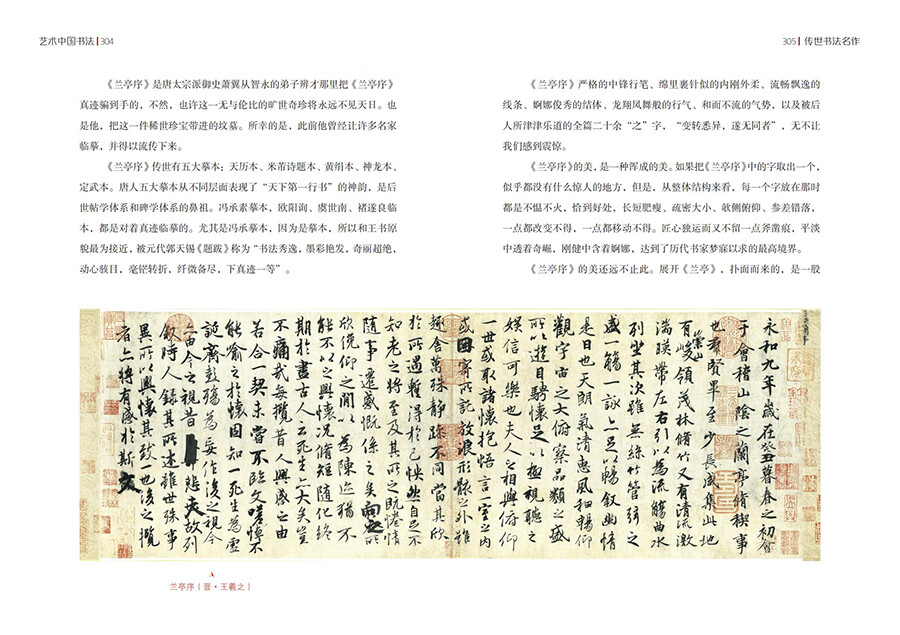 艺术中国书法 | 304
《兰亭序》是唐太宗派御史萧翼从智永的弟子辨才那里把《兰亭序》
真迹骗到手的，不然，也许这一无与伦比的旷世奇珍将永远不见天日。也
是他，把这一件稀世珍宝带进的坟墓。所幸的是，此前他曾经让许多名家
临摹，并得以流传下来。
《兰亭序》传世有五大摹本：天历本、米芾诗题本、黄绢本、神龙本、
定武本。唐人五大摹本从不同层面表现了“天下第一行书”的神韵，是后
世帖学体系和碑学体系的鼻祖。冯承素摹本，欧阳询、虞世南、褚遂良临
本，都是对着真迹临摹的。尤其是冯承摹本，因为是摹本，所以和王书原
貌最为接近，被元代郭天锡《题跋》称为“书法秀逸，墨彩艳发，奇丽超绝，
动心骇目，毫铓转折，纤微备尽，下真迹一等”。
305 | 传世书法名作
《兰亭序》严格的中锋行笔、绵里裹针似的内刚外柔、流畅飘逸的
线条、婀娜俊秀的结体、龙翔凤舞般的行气、和而不流的气势，以及被后
人所津津乐道的全篇二十余“之”字，“变转悉异，遂无同者”，无不让
我们感到震惊。
《兰亭序》的美，是一种浑成的美。如果把《兰亭序》中的字取出一个，
似乎都没有什么惊人的地方，但是，从整体结构来看，每一个字放在那时
都是不愠不火，恰到好处，长短肥瘦、疏密大小、敧侧俯仰、参差错落，
一点都改变不得，一点都移动不得。匠心独运而又不留一点斧凿痕，平淡
中透着奇崛，刚健中含着婀娜，达到了历代书家梦寐以求的最高境界。
《兰亭序》的美还远不止此。展开《兰亭》，扑面而来的，是一股
永和九年歲在癸丑暮春之初會
于會稽山陰之蘭亭脩稧事
也群賢畢至少長咸集此地
有崇山峻領茂林脩竹又有清流激
湍暎帶左右引以為流觴曲水
列坐其次雖無絲竹管弦之
盛一觴一詠亦足以暢敘幽情
是日也天朗氣清惠風和暢仰
觀宇宙之大俯察品類之盛
所以遊目騁懷足以極視聽之
娛信可樂也夫人之相與俯仰
一世或取諸懷抱悟言一室之內
或因寄所託放浪形骸之外雖
趣舍萬殊靜躁不同當其欣
於所遇蹔得於己怏然自足不
知老之將至及其所之既惓情
隨事遷感慨係之矣向之所
欣俛仰之閒以為陳迹猶不
能不以之興懷況脩短隨化終
期於盡古人云死生亦大矣豈
不痛哉每攬昔人興感之由
若合一契未嘗不臨文嗟悼不
能喻之於懷固知一死生為虛
誕齊彭殤為妄作後之視今
亦由今之視昔悲夫故列
敘時人錄其所述雖世殊事
異所以興懷其致一也後之攬
者亦將有感於斯文
兰亭序（晋·王羲之）